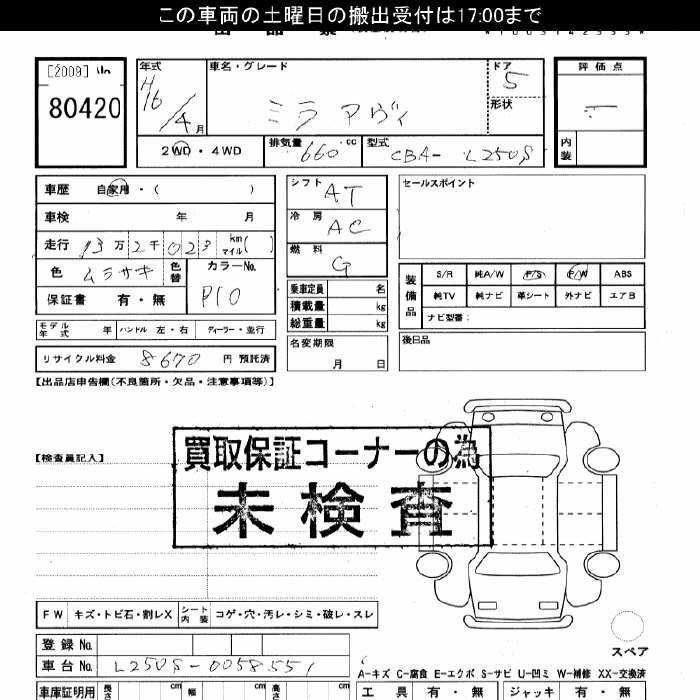 この車両の土曜日の搬出受付は17:00まで
[2009]
80420
年式
H16/4月
車名・グレード
ミラ アヴィ
ドア
5
形状
評価点
内装
2WD・4WD
排気量 660 cc
型式 CBA- L250S
車歴 自家用・( )
車検 年 月
走行 13万2千023 km マイル( )
色 ムラサキ 色替
カラーNo. P10
保証書 有・無
モデル年式 年 ハンドル 左・右 ディーラー・並行
リサイクル料金 8670 円 預託済
シフト AT
冷房 AC
燃料 G
乗車定員 名
積載量 kg
総重量 kg
名変期限
月 日
セールスポイント
装備品
S/R 純A/W P/S P/W ABS
純TV 純ナビ 革シート 外ナビ エアB
ナビ型番:
後日品
【出品店申告欄(不良箇所・欠品・注意事項等)】
【検査員記入】
買取保証コーナーの為
未検査
FW キズ・トビ石・割レX シート内装 コゲ・穴・汚レ・シミ・破レ・スレ
スペア
登録No.
車台No. L250S-0058551
A-キズ C-腐食 E-エクボ S-サビ U-凹ミ W-補修 XX-交換済
車庫証明用 長さ cm 幅 cm 高さ cm
工具 有・無 ジャッキ 有・無